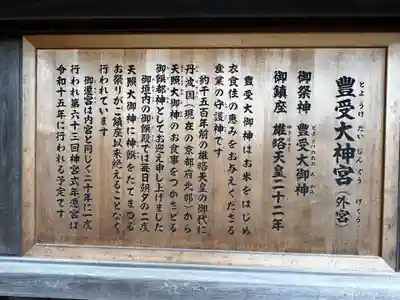 豊受大神宮(外宮)
とようけだいじんぐう げくう
御祭神 豊受大御神
御鎮座 雄略天皇二十二年
豊受大御神はお米をはじめ
衣食住の恵みをお与えくださる
産業の守護神です
約千五百年前の雄略天皇の御代に
丹波国(現在の京都府北部)から
天照大御神のお食事をつかさどる
御饌都神としてお迎え申し上げました
御垣内の御饌殿では毎日朝夕の二度
天照大御神に神饌をたてまつる
お祭りがご鎮座以来絶えることなく
行われています
御遷宮は内宮と同じく二十年に一度
行われ第六十三回神宮式年遷宮は
令和十五年に行われる予定です